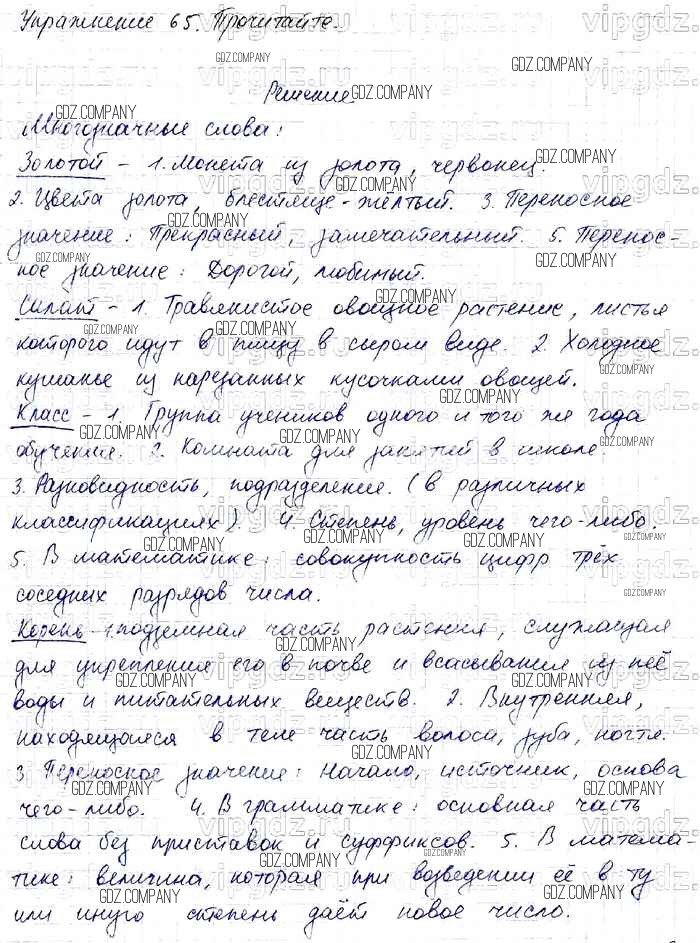 Упражнение 65. Прочитайте.
Решение
Многозначные слова:
Золотой - 1. Монета из золота, червонец.
2. Цвета золота, блестяще-жёлтый. 3. Переносное
значение: Прекрасный, замечательный. 5. Перенос-
ное значение: Дорогой, любимый.
Салат - 1. Травянистое овощное растение, листья
которого идут в пищу в сыром виде. 2. Холодное
кушанье из нарезанных кусочками овощей.
Класс - 1. Группа учеников одного и того же года
обучения. 2. Комната для занятий в школе.
3. Разновидность, подразделение. (в различных
классификациях). 4. Степень, уровень чего-либо.
5. В математике: совокупность цифр трёх
соседних разрядов числа.
Корень - 1. подземная часть растения, служащая
для укрепления его в почве и всасывания из неё
воды и питательных веществ. 2. Внутренняя,
находящаяся в теле часть волоса, зуба, ногтя.
3. Переносное значение: Начало, источник, основа
чего-либо. 4. В грамматике: основная часть
слова без приставок и суффиксов. 5. В матема-
тике: величина, которая при возведении её в ту
или иную степень даёт новое число.